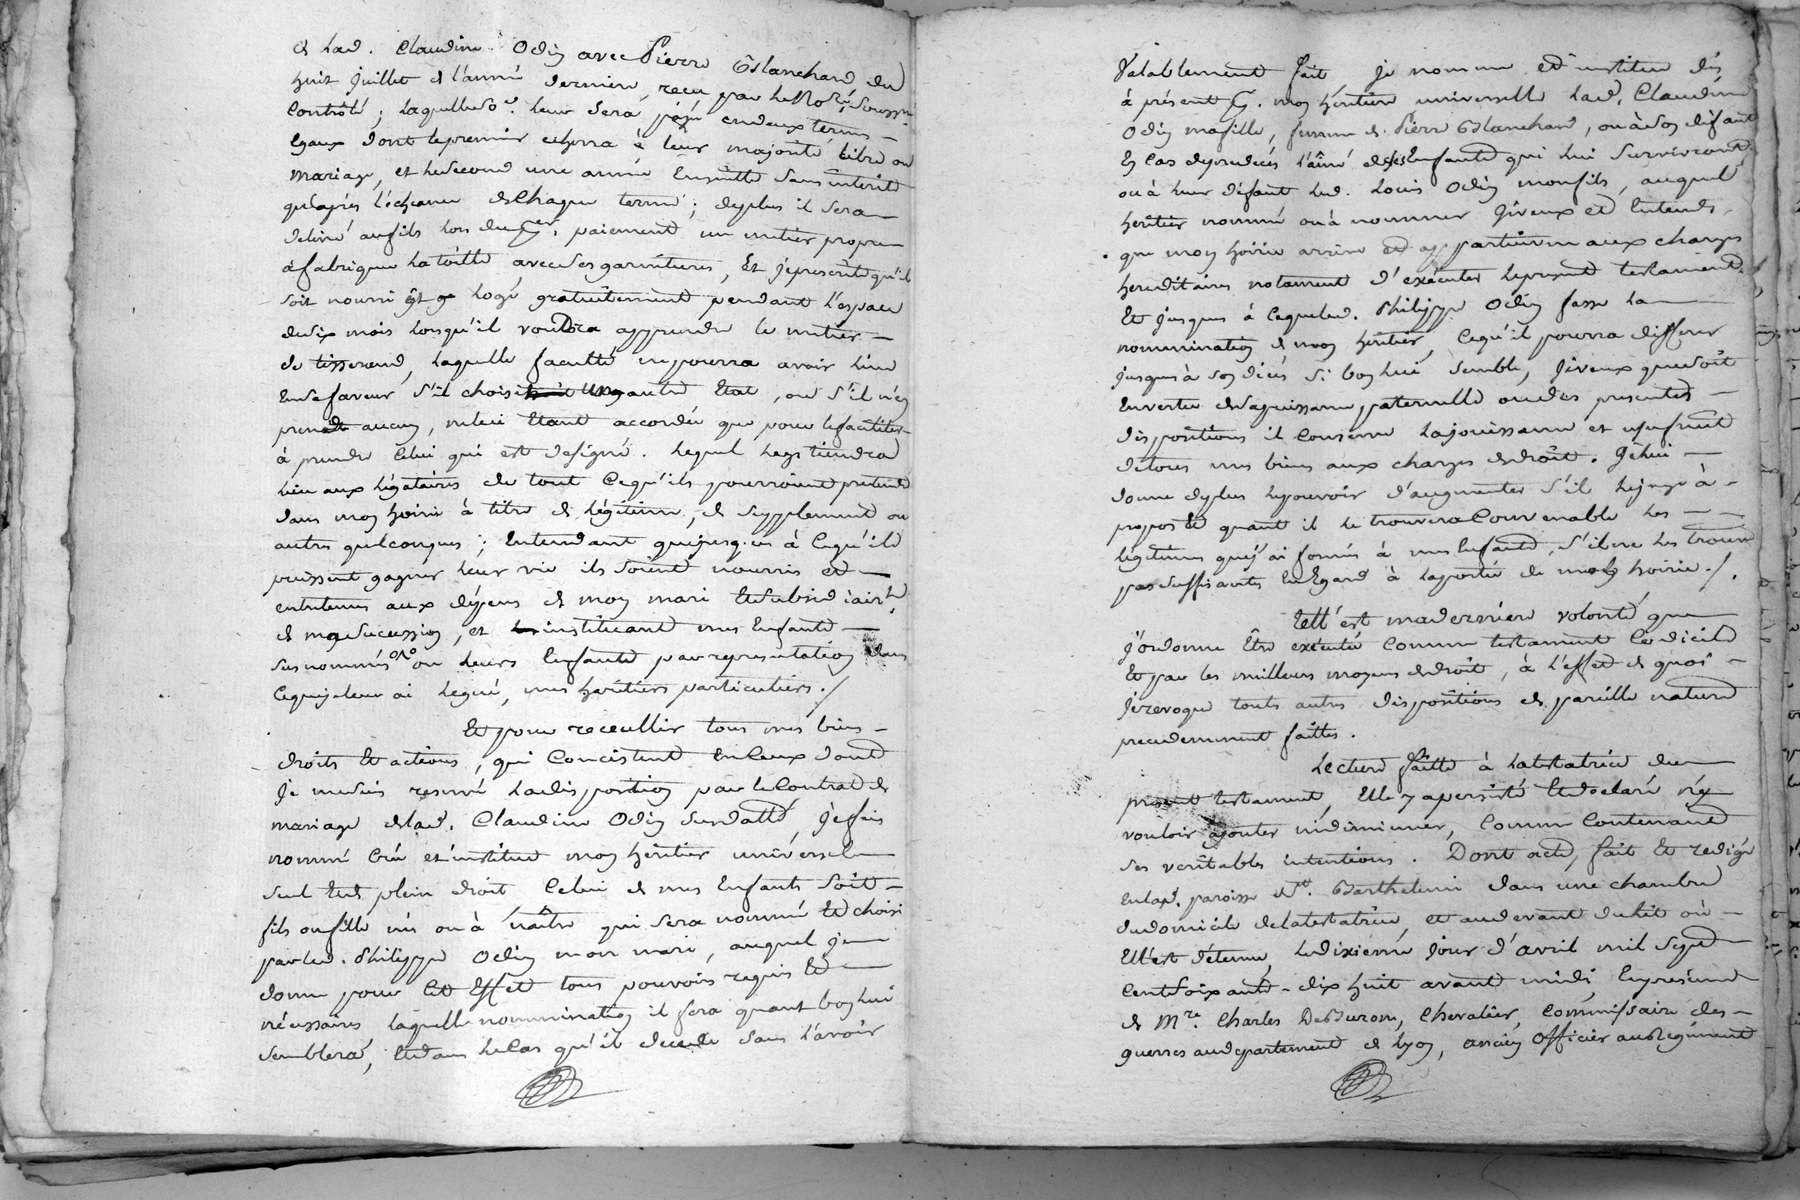 de lad. Claudine Odin avec Pierre Blanchard du
huit Juillet de l'année derniere, recu par le No.re soussigné
Controlé; laquelle so.e leur sera payé en deux termes
Egaux dont le premier echerra à leur majorité libre ou
mariage, et le second une année Ensuitte sans interêt
qu'après l'écheance de Chaque terme; de plus il sera
delivré au fils lors du p.er paiement un metier propre
à fabriquer la toille avec ses garnitures, Et je prescrits qu'il
soit nourri et logé gratuitement pendant l'espace
de six mois lorsqu'il voudra apprendre le métier
de tisserand, laquelle faculté ne pourra avoir lieu
En sa faveur s'il choisit un autre Etat, ou s'il n'en
prend aucun, celui Etant accordée que pour le faciliter
à prendre Celui qui est designé. Lequel legs tiendra
lieu aux légataires de tout Ce qu'ils pourroient pretendre
dans mon hoirie à titre de légitime, de supplement ou
autres quelconques; Entendant que jusques à Ce qu'ils
puissent gagner leur vie ils soient nourris et
entretenus aux dépens de mon mari Et subsidiairem.t
de ma succession, et instituant mes Enfants
sus nommés ou leurs Enfants par représentation dans
Ce que je leur ai legué, mes heritiers particuliers./
Et pour receuillir tous mes biens
droits Et actions, qui Concistent En Ceux dont
Je me suis reservé la disposition par le Contrat de
mariage de lad. Claudine Odin susdatté, je fais
nomme Crée et institue mon héritier universel
seul Et de plein droit Celui de mes Enfants soit
fils ou fille nés ou à naître qui sera nommé Et choisi
par led. Philippe Odin mon mari, auquel je
donne pour Cet Effet tous pouvoirs requis Et
nécessaires laquelle nommination il fera quant bon lui
semblera, Et dans le Cas qu'il decede sans l'avoir
Valablement fait je nomme Et institue dès
à présent p. mon héritiere universelle lad. Claudine
Odin ma fille, femme de Pierre Blanchard, ou à son défaut
En Cas de predecés l'ainé de ses Enfants qui lui survivront
ou à leur défaut led. Louis Odin mon fils, auquel
heritier nommé ou à nommer Je veux et Entends
que mon hoirie arrive et appartienne aux charges
hereditaires notament d'executer le present testament.
Et jusques à Ce que led. Philippe Odin fasse la
nommination de mon héritier, Ce qu'il pourra differer
jusques à son décès si bon lui semble, je veux que soit
En vertu de sa puissance paternelle ou des presentes
dispositions il Conserve la jouissance et usufruit
de tous mes biens aux charges de droit. Je lui
donne de plus le pouvoir d'augmenter s'il le juge à
propos Et quant il le trouvera Convenable les
légitimes que j'ai formés à mes Enfants, s'il ne les trouve
pas suffisants En Egard à la portée de mon hoirie./.
Tell'est ma derniere volonté que
j'ordonne être executée Comme testament Codicile
Et par les meilleurs moyens de droit, à l'effet de quoi
je revoque touts autres dispositions de pareille nature
precedemment faittes.
Lecture faitte à la testatrice du
présent testament, Elle y a persisté Et declaré n'y
vouloir ajouter ni diminuer, Comme Contenant
ses veritables intentions. Dont acte, fait Et redigé
En lad. paroisse de S.t Barthelemi dans une chambre
du domicile de la testatrice, et au devant du lit où
Ell'est détenue, le dixieme jour d'avril mil sept
Cent soixante-dix huit avant midi En présence
de M.re Charles DeBurone, Chevalier, Commissaire des
guerres au departement de Lyon, ancien Officier au Regiment